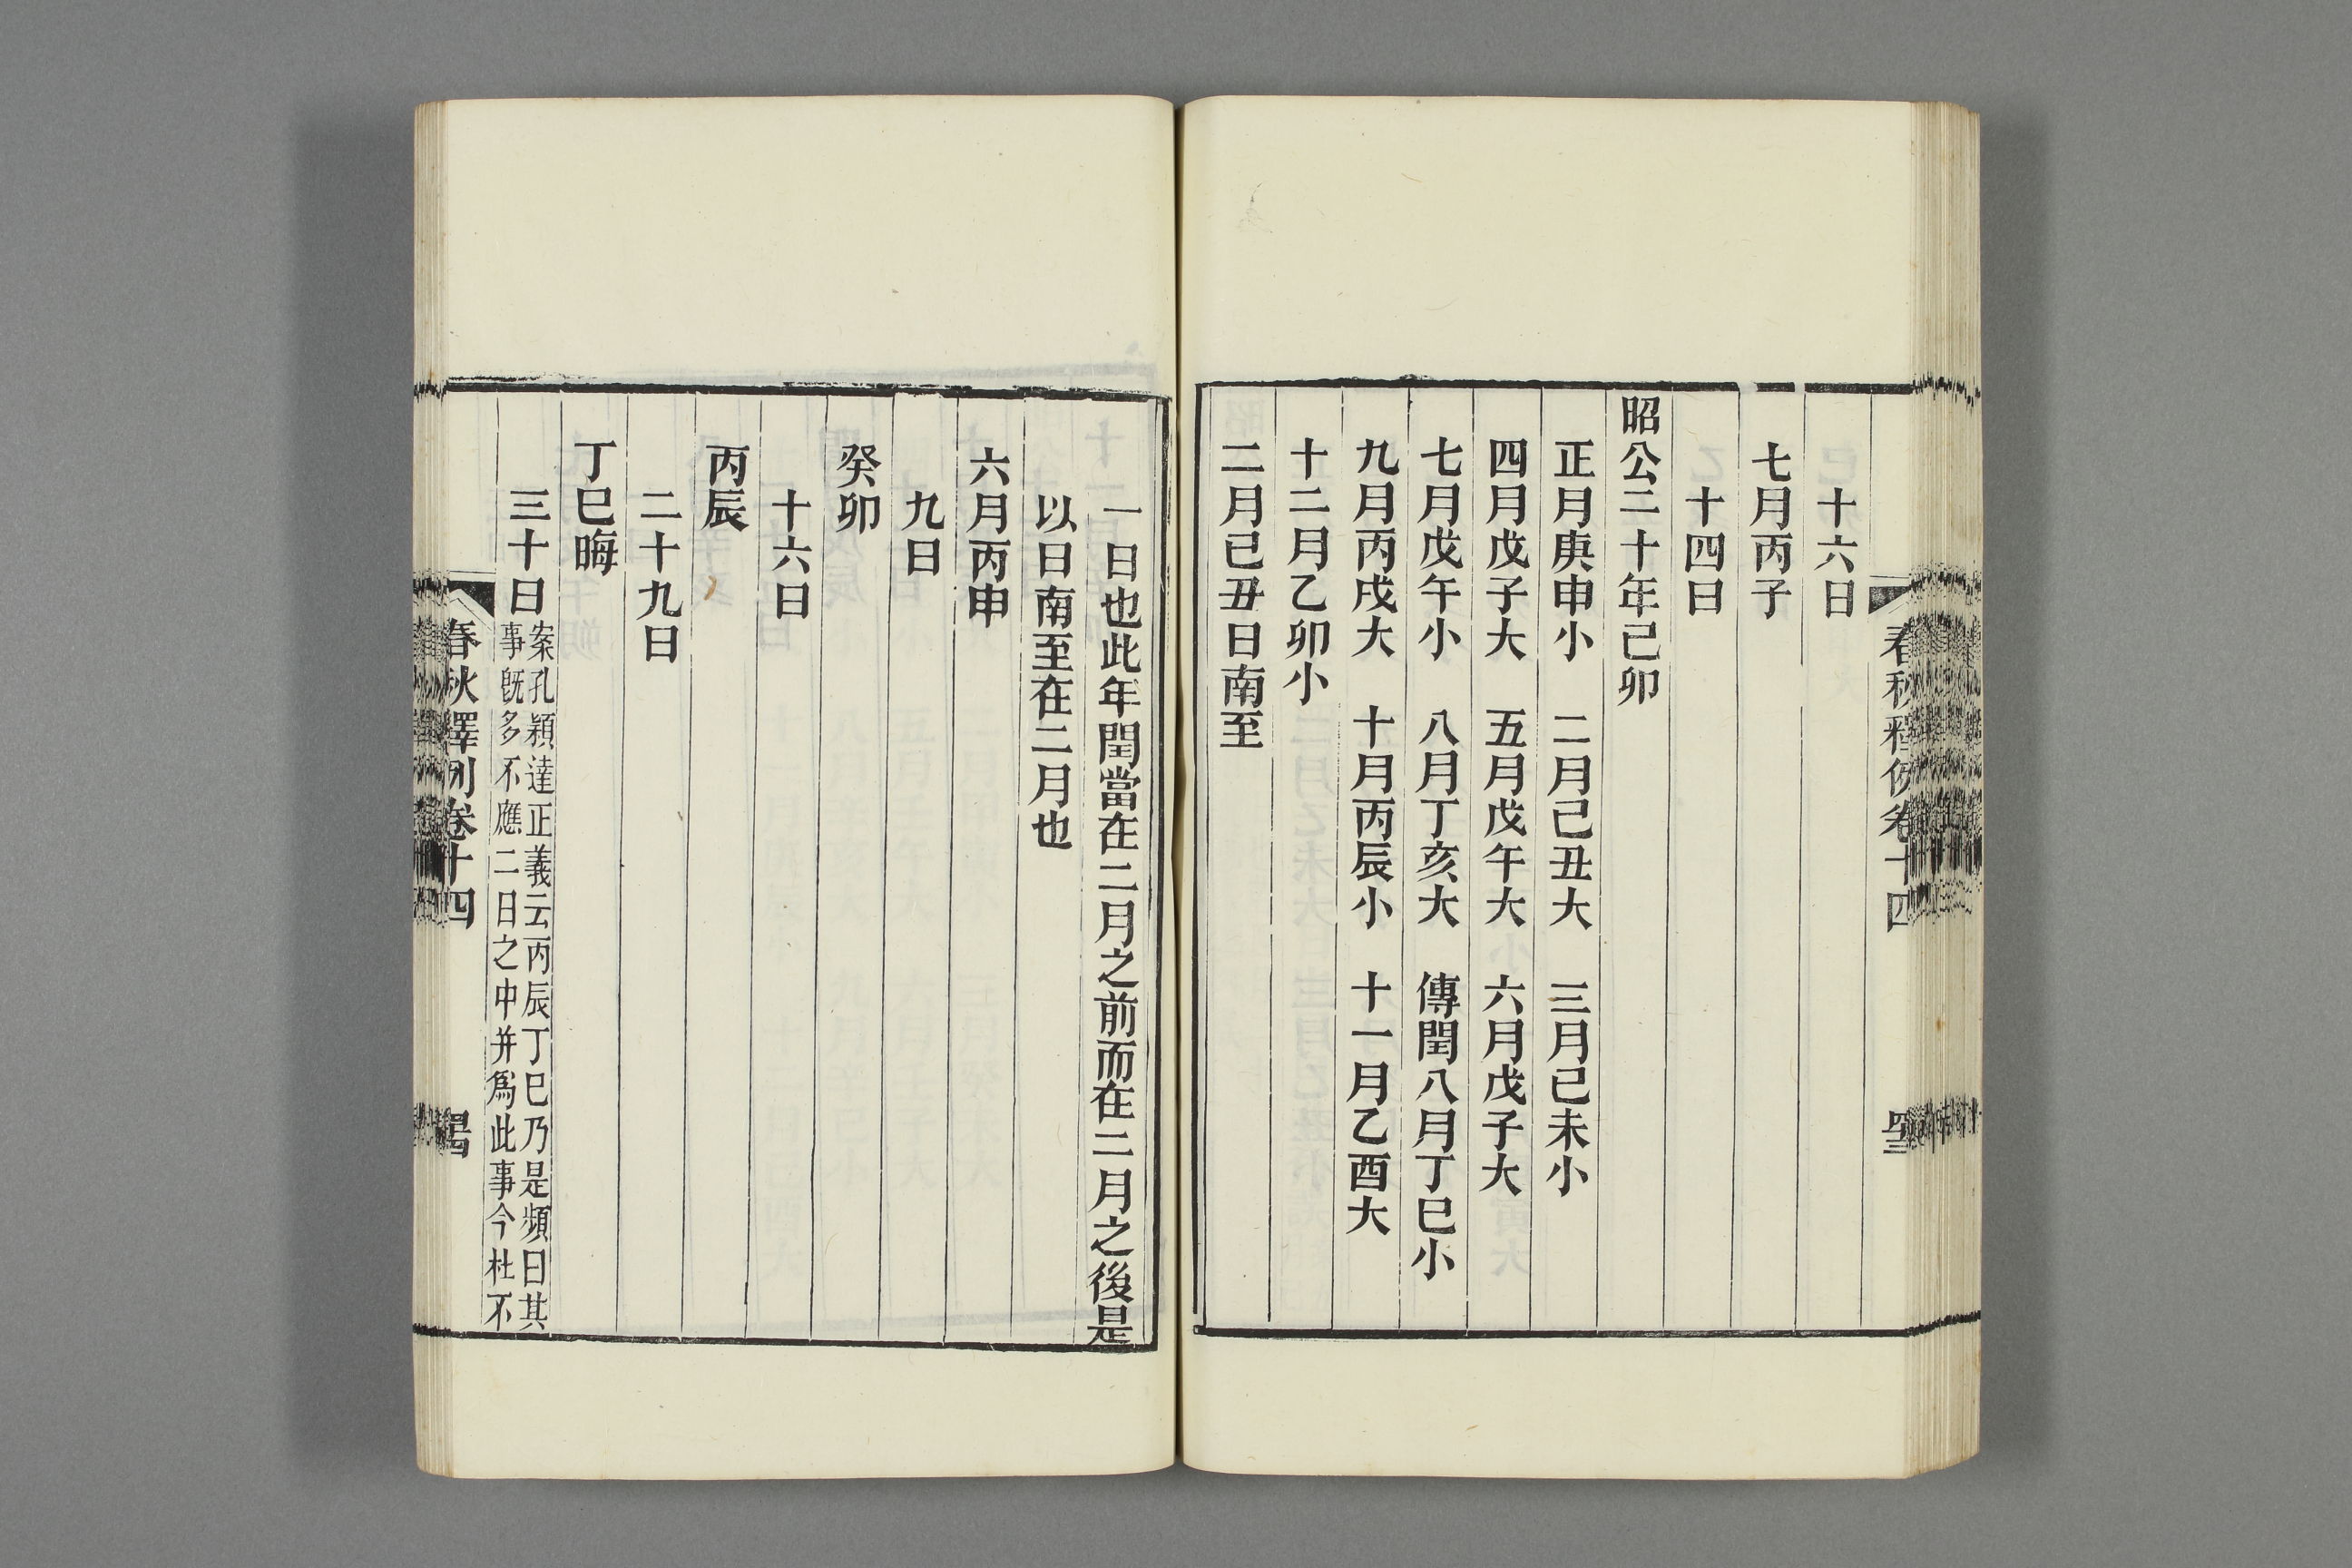 十六日
七月丙子
十四日
昭公二十年己卯
正月庚申小　二月己丑大　三月己未小
四月戊子大　五月戊午大　六月戊子大
七月戊午小　八月丁亥大　傳閏八月丁巳小
九月丙戌大　十月丙辰小　十一月乙酉大
十二月乙卯小
二月己丑日南至
一日也此年閏當在二月之前而在二月之後是
以日南至在二月也
六月丙申
九日
癸卯
十六日
丙辰
二十九日
丁巳晦
三十日案孔穎達正義云丙辰丁巳乃是頻日其
事旣多不應二日之中并爲此事今杜不
春秋釋例卷十四